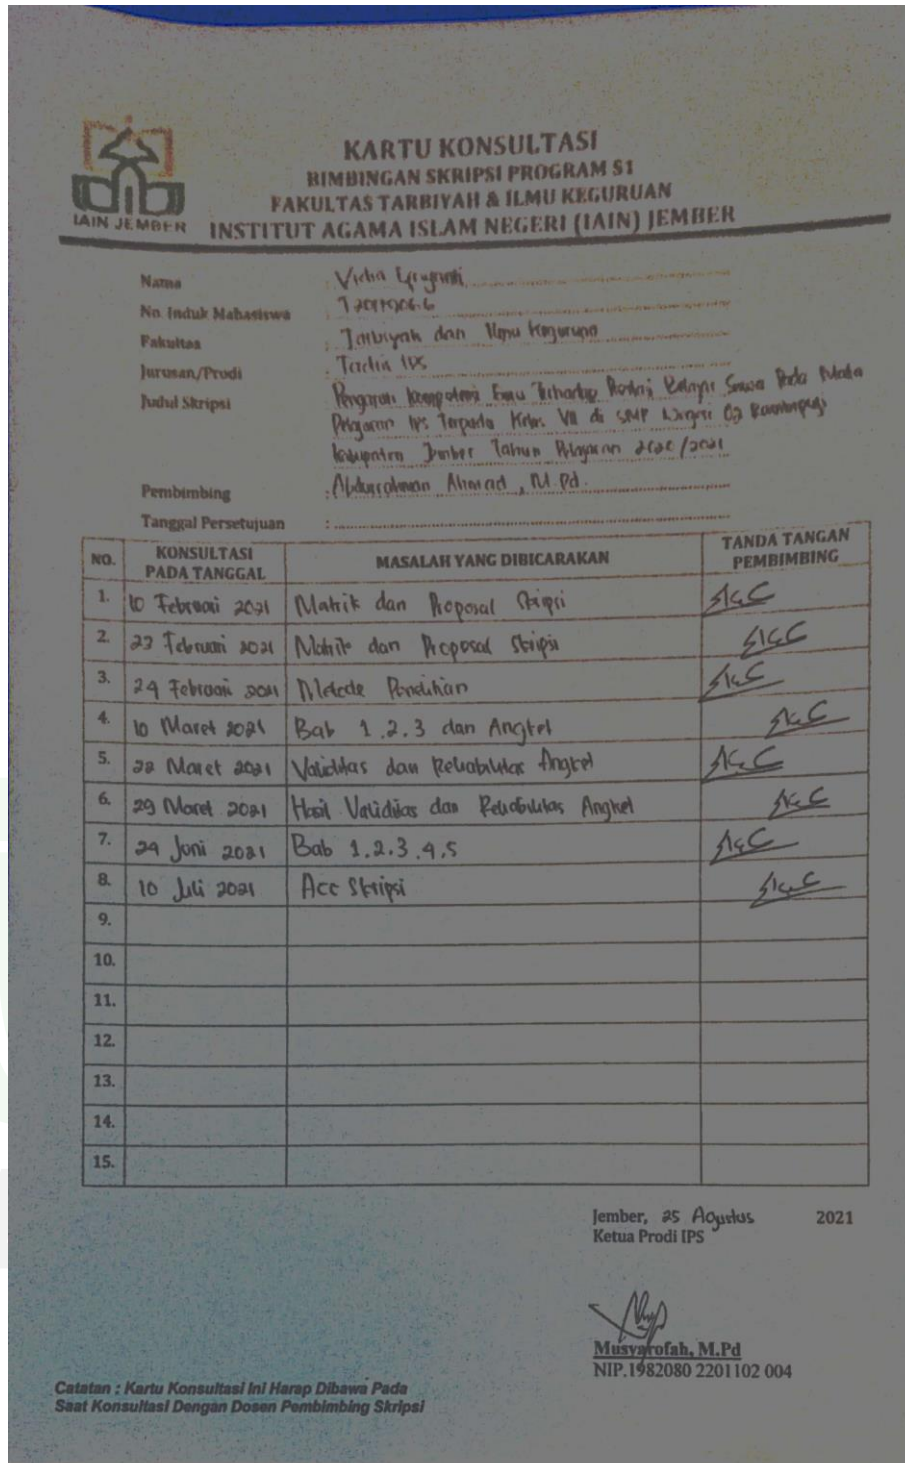 KARTU KONSULTASI
BIMBINGAN SKRIPSI PROGRAM S1
FAKULTAS TARBIYAH & ILMU KEGURUAN
INSTITUT AGAMA ISLAM NEGERI (IAIN) JEMBER
IAIN JEMBER
Nama :
No. Induk Mahasiswa :
Fakultas : Tarbiyah dan Ilmu Keguruan
Jurusan/Prodi : Tadris IPS
Judul Skripsi : Kompetensi Guru Terhadap Belajar Siswa Pada Mata
Pelajaran IPS Terpadu Kelas VII di SMP Negeri 02
Kabupaten Jember Tahun Pelajaran 2020/2021
Pembimbing : Abdurrahman Ahmad, M.Pd.
Tanggal Persetujuan :
NO. KONSULTASI PADA TANGGAL MASALAH YANG DIBICARAKAN TANDA TANGAN PEMBIMBING
1. 10 Februari 2021 Matrik dan Proposal Skripsi
2. 23 Februari 2021 Matrik dan Proposal Skripsi
3. 24 Februari 2021 Metode Penelitian
4. 10 Maret 2021 Bab 1.2.3 dan Angket
5. 22 Maret 2021 Validitas dan Reliabilitas Angket
6. 29 Maret 2021 Hasil Validitas dan Reliabilitas Angket
7. 24 Juni 2021 Bab 1.2.3.4.5
8. 10 Juli 2021 Acc Skripsi
9.
10.
11.
12.
13.
14.
15.
Jember, 25 Agustus 2021
Ketua Prodi IPS
Musyarofah, M.Pd
NIP.1982080 2201102 004
Catatan : Kartu Konsultasi Ini Harap Dibawa Pada
Saat Konsultasi Dengan Dosen Pembimbing Skripsi